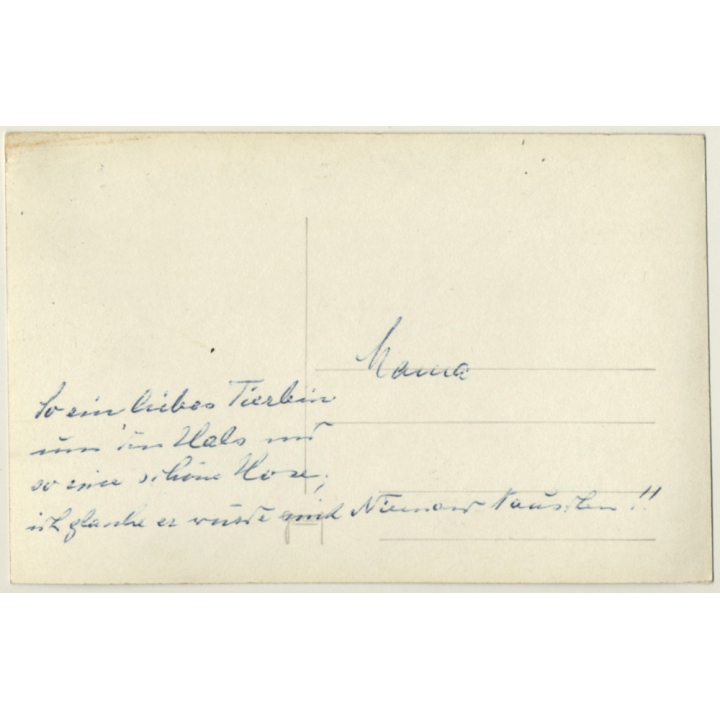 Mama
So ein liebes Tierlein
um den Hals und
so eine schöne Hose,
ich glaube er würde mit Niemand tauschen!!